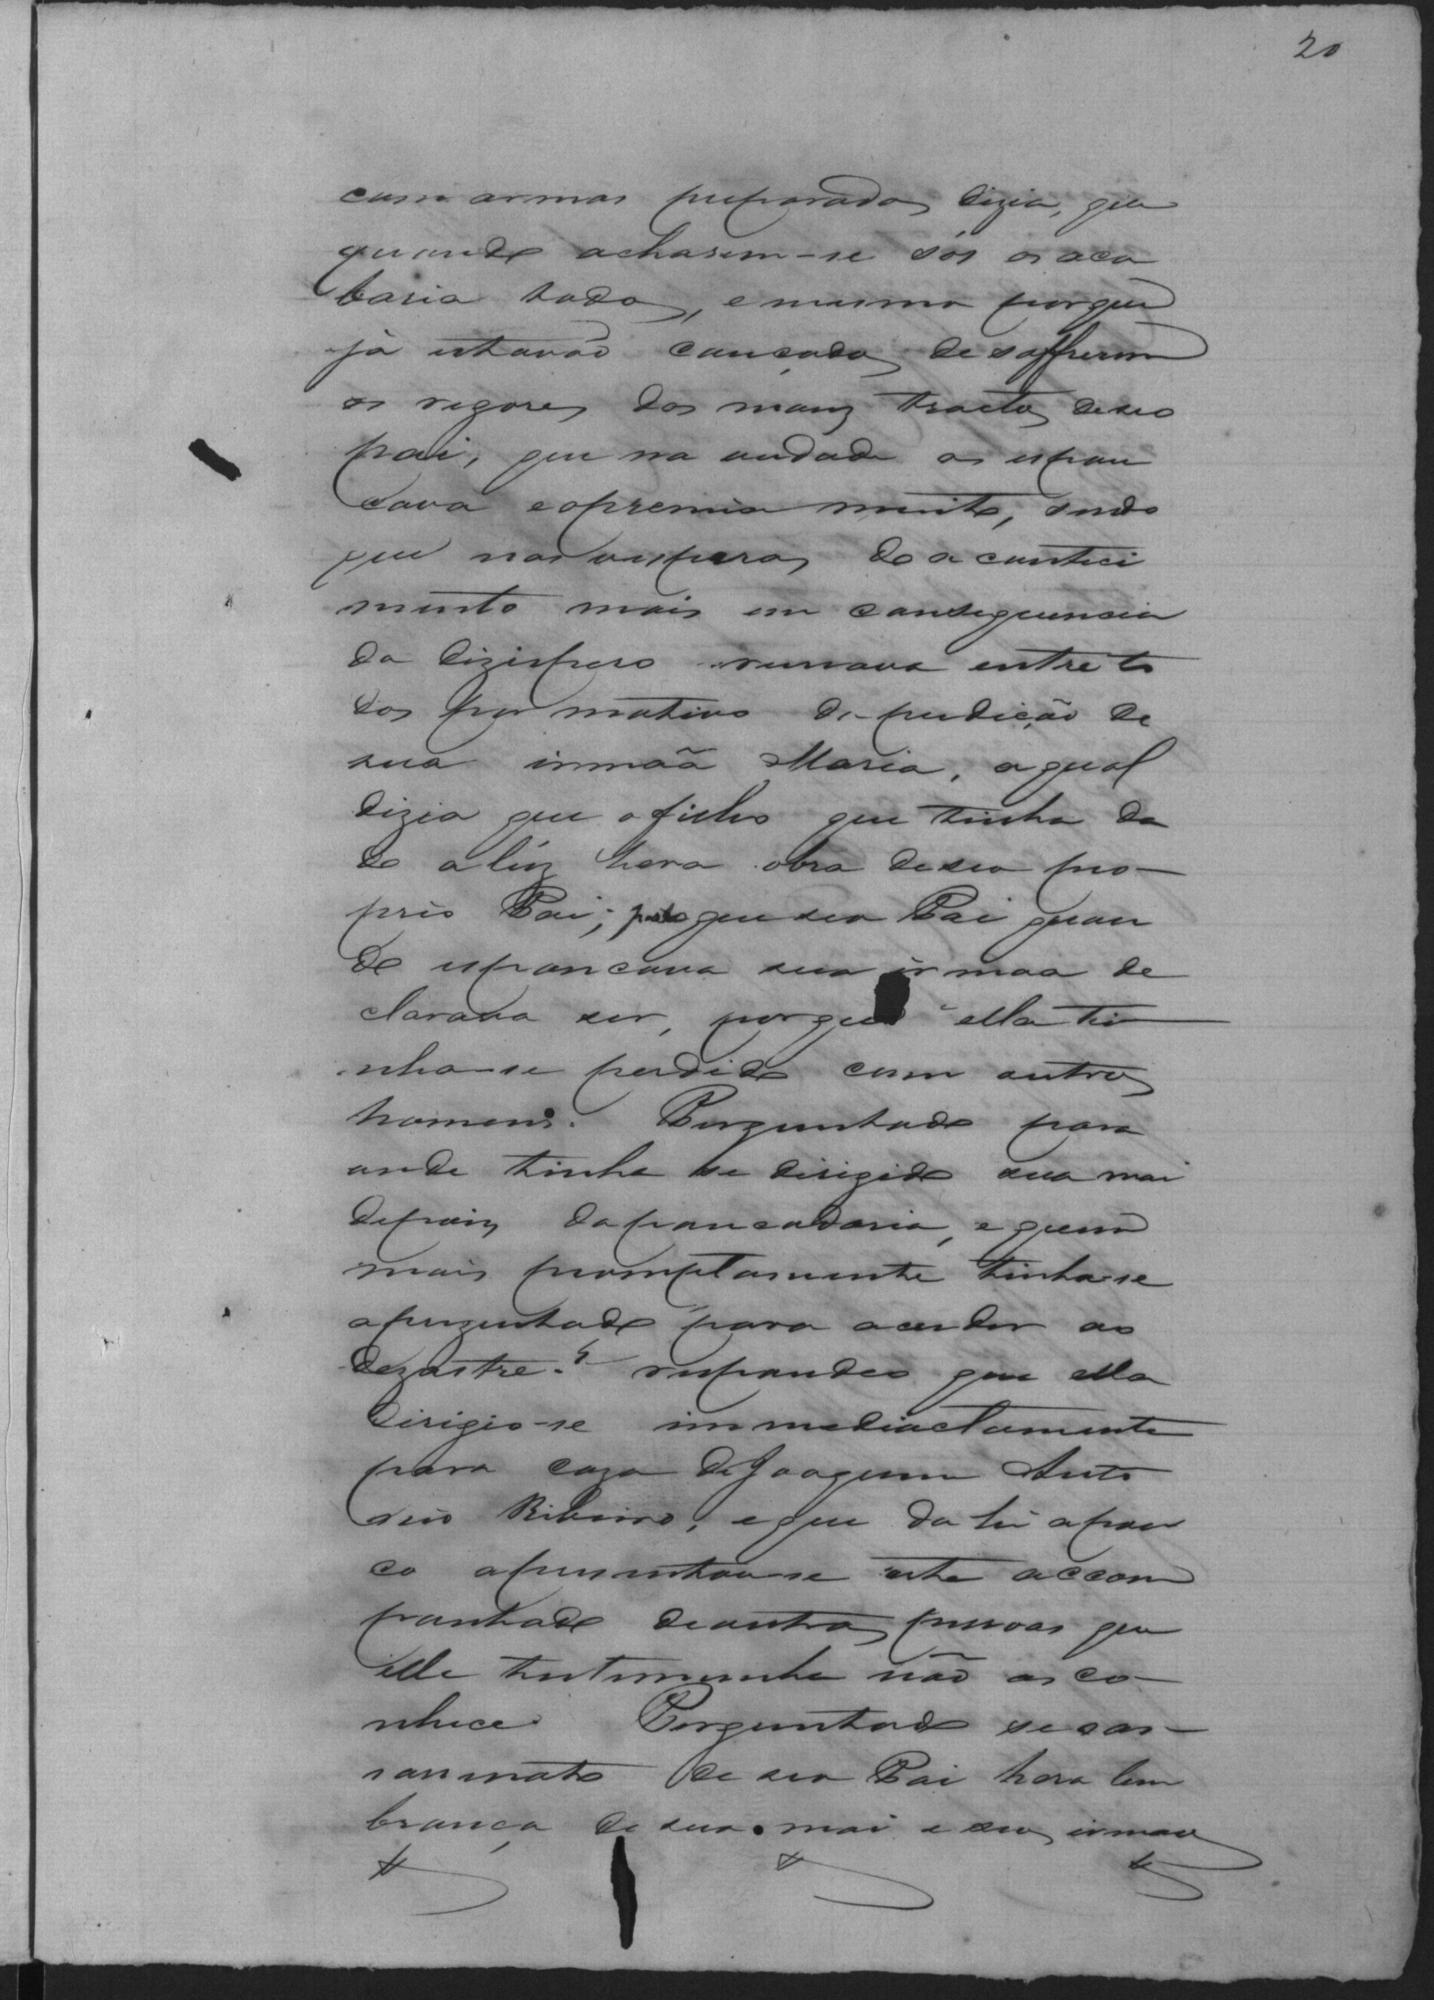 20
com armas preparadas dizia, que
quando acharem-se sós os aca
baria todos, e mesmo porque
já estavão cançados de soffrerem
os rigores dos maus tractos de seo
pai, que na verdade os espan
cava e opremia muito, sendo
que nas vesperas do aconteci
mento mais em consequencia
do dizispero reinava entre to
dos por motivos da perdição de
sua irmaã Maria, a qual
dizia que o filho que tinha da
do a lúz hera obra de seo pro-
prio Pai; pelo que seo Pai quan
do espancava sua irmaa de
clarava ser, porque ella ti
nha-se perdido com outros
homens. Perguntado para
onde tinha se dirigido sua mai
depois da pancadaria, e quem
mais promptamente tinha-se
aprezentado para acudir ao
dezastre? respondeo que ella
dirigio-se immediactamente
para caza de Joaquim Anto
nio Ribeiro, e que da hi a pou
co apresentou-se este accom
panhado de outras pessoas que
elle testimunha não as co-
nhece. Perguntado se o as-
sassinato de seo Pai hera lem
brança de sua mai e seus irmaos